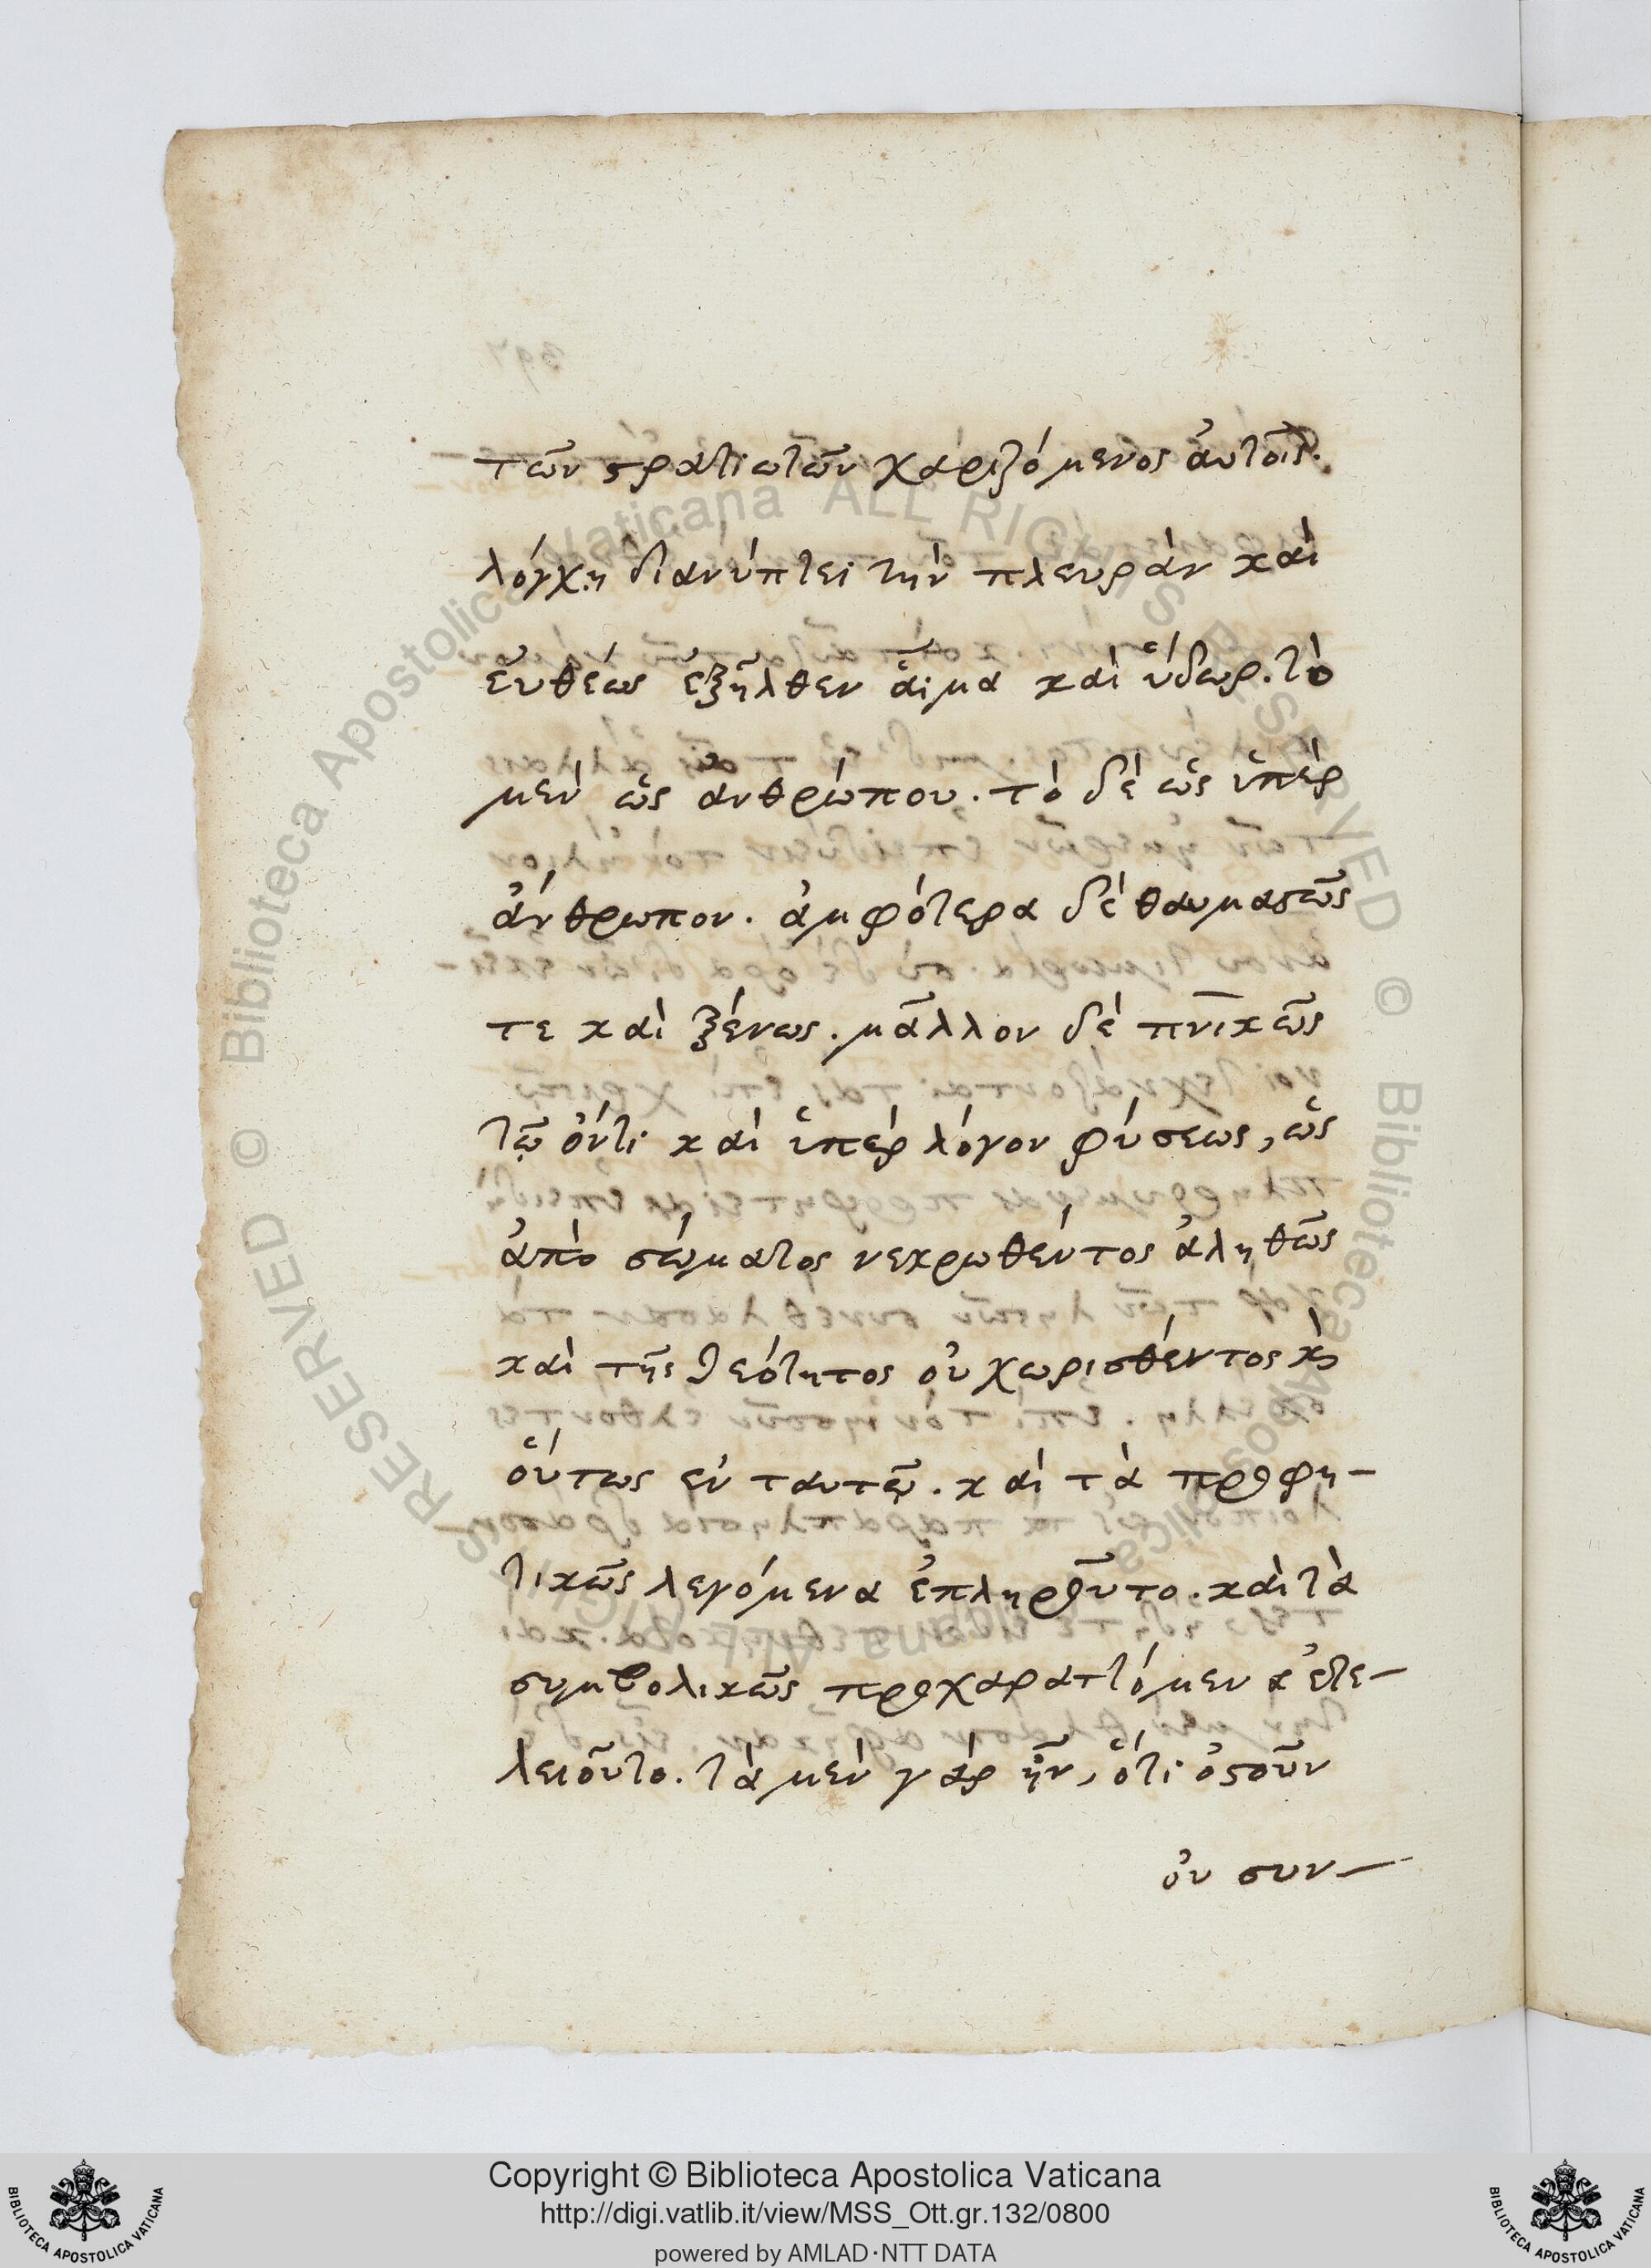 τῶν στρατιωτῶν χαριζόμενος ἀυτοῖς.
λόγχη διανύπτει τὴν πλευρὰν καὶ
ἐυθέως ἐξῆλθεν ἇιμα καὶ ὕδωρ. τὸ
μὲν ὡς ἀνθρώπου. τὸ δὲ ὡς ὑπὲρ
ἄνθρωπον. ἀμφότερα δὲ θαυμαστῶς
τε καὶ ξένως. μᾶλλον δὲ πνικῶς
τῷ ὄντι καὶ ὑπὲρ λόγον φύσεως, ὡς
ἀπὸ σώματος νεκρωθέντος ἀληθῶς
καὶ τῆς θεότητος οὐ χωρισθέντος κὸ
οὕτως ἐν ταυτῷ. καὶ τὰ προφη-
τικῶς λεγόμενα ἐπληροῦτο. καὶ τὰ
συμβολικῶς προχαραττόμενα ἐτε-
λειοῦτο. τὰ μὲν γὰρ ἦν, ὅτι ὀστοῦν
οὐ συν-
Copyright © Biblioteca Apostolica Vaticana
http://digi.vatlib.it/view/MSS_Ott.gr.132/0800
powered by AMLAD·NTT DATA
BIBLIOTECA APOSTOLICA VATICANA
BIBLIOTECA APOSTOLICA VATICANA